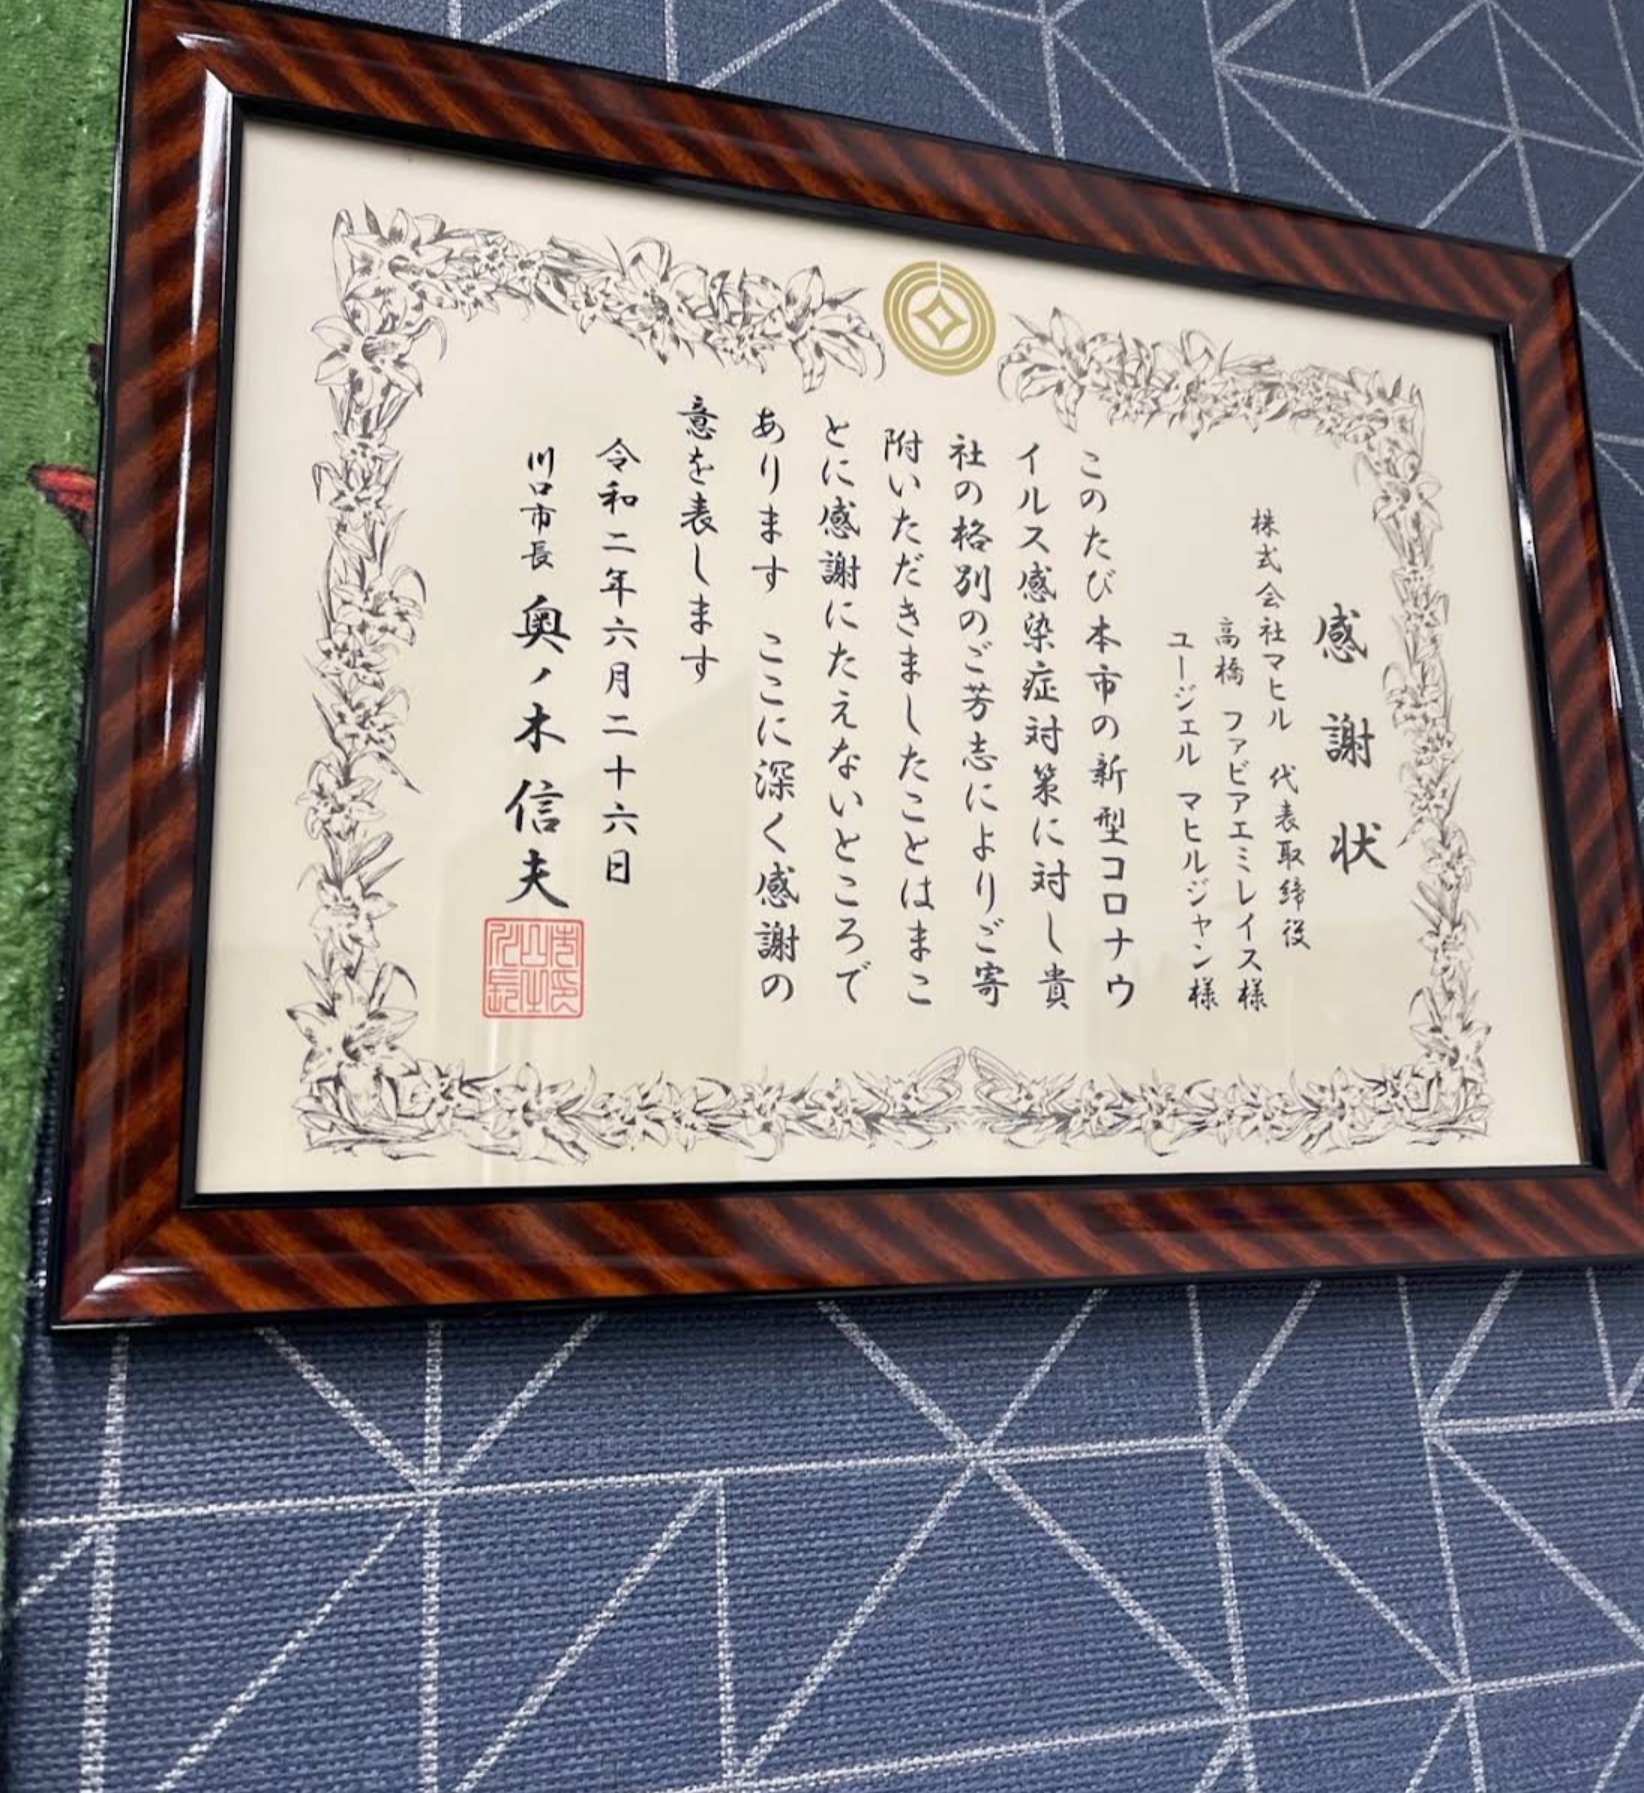 感謝状
株式会社マヒル 代表取締役
高橋 ファビアエミレイス様
ユージェル マヒルジャン様
このたび本市の新型コロナウ
イルス感染症対策に対し貴
社の格別のご芳志によりご寄
附いただきましたことはまこ
とに感謝にたえないところで
あります ここに深く感謝の
意を表します
令和二年六月二十六日
川口市長 奥ノ木信夫